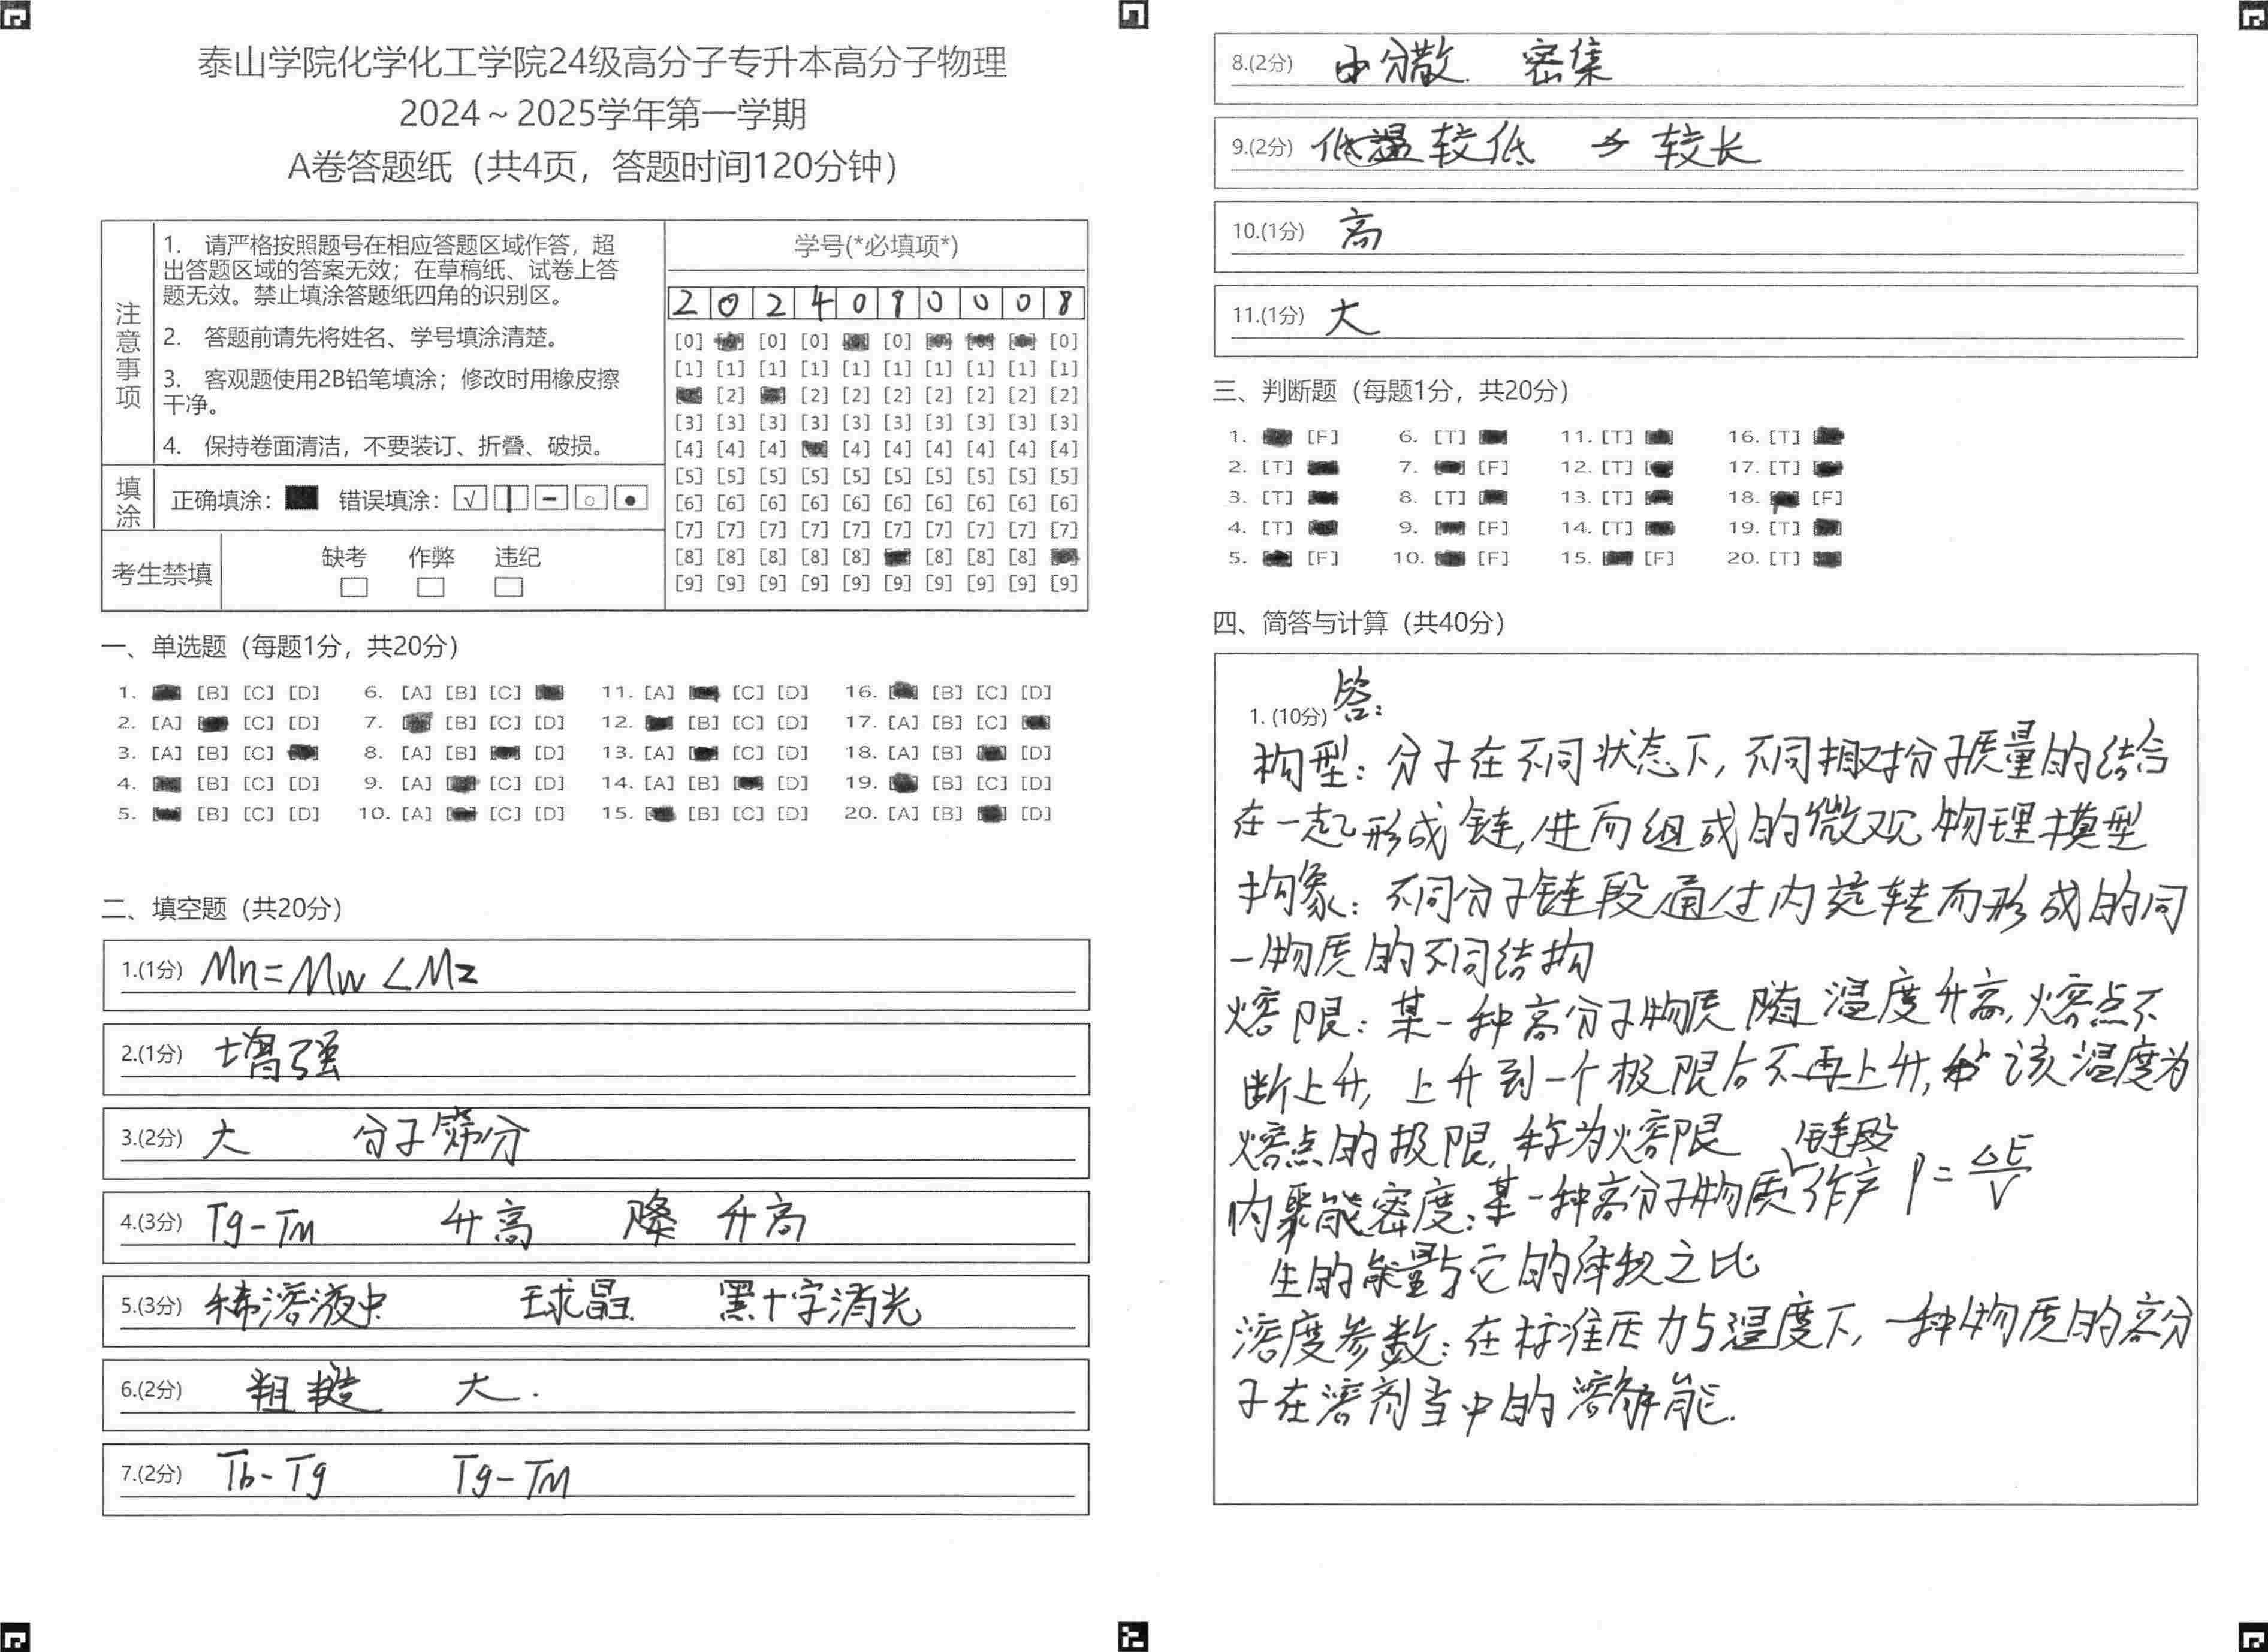 泰山学院化学化工学院24级高分子专升本高分子物理
2024～2025学年第一学期
A卷答题纸（共4页，答题时间120分钟）
注意事项
1. 请严格按照题号在相应答题区域作答，超
出答题区域的答案无效；在草稿纸、试卷上答
题无效。禁止填涂答题纸四角的识别区。
2. 答题前请先将姓名、学号填涂清楚。
3. 客观题使用2B铅笔填涂；修改时用橡皮擦
干净。
4. 保持卷面清洁，不要装订、折叠、破损。
填涂
正确填涂： 错误填涂：
考生禁填
缺考 作弊 违纪
学号(*必填项*)
2 0 2 4 0 8 0 0 0 8
[0] [0] [0] [0]
[1] [1] [1] [1] [1] [1] [1] [1] [1] [1]
[2] [2] [2] [2] [2] [2] [2] [2]
[3] [3] [3] [3] [3] [3] [3] [3] [3] [3]
[4] [4] [4] [4] [4] [4] [4] [4] [4]
[5] [5] [5] [5] [5] [5] [5] [5] [5] [5]
[6] [6] [6] [6] [6] [6] [6] [6] [6] [6]
[7] [7] [7] [7] [7] [7] [7] [7] [7] [7]
[8] [8] [8] [8] [8] [8] [8] [8]
[9] [9] [9] [9] [9] [9] [9] [9] [9] [9]
一、单选题（每题1分，共20分）
1. [B] [C] [D] 6. [A] [B] [C] 11. [A] [C] [D] 16. [B] [C] [D]
2. [A] [C] [D] 7. [B] [C] [D] 12. [B] [C] [D] 17. [A] [B] [C]
3. [A] [B] [C] 8. [A] [B] [D] 13. [A] [C] [D] 18. [A] [B] [D]
4. [B] [C] [D] 9. [A] [C] [D] 14. [A] [B] [D] 19. [B] [C] [D]
5. [B] [C] [D] 10. [A] [C] [D] 15. [B] [C] [D] 20. [A] [B] [D]
二、填空题（共20分）
1.(1分) Mn=Mw<Mz
2.(1分) 增强
3.(2分) 大 分子筛分
4.(3分) Tg-Tm 升高 降 升高
5.(3分) 稀溶液中 球晶 黑十字消光
6.(2分) 粗糙 大.
7.(2分) Tb-Tg Tg-TM
8.(2分) 分散. 密集
9.(2分) 较低 较长
10.(1分) 高
11.(1分) 大
三、判断题（每题1分，共20分）
1. [F] 6. [T] 11. [T] 16. [T]
2. [T] 7. [F] 12. [T] 17. [T]
3. [T] 8. [T] 13. [T] 18. [F]
4. [T] 9. [F] 14. [T] 19. [T]
5. [F] 10. [F] 15. [F] 20. [T]
四、简答与计算（共40分）
1. (10分) 答:
构型: 分子在不同状态下, 不同相对分子质量的结合
在一起形成链, 进而组成的微观物理模型
构象: 不同分子链段通过内旋转而形成的同
一物质的不同结构
熔限: 某一种高分子物质随温度升高, 熔点不
断上升, 上升到一个极限后不再上升, 该温度为
熔点的极限, 称为熔限
内聚能密度: 某一种高分子物质链段作产 ρ=ΔE/V
生的能量与它的体积之比
溶度参数: 在标准压力与温度下, 一种物质的高分
子在溶剂当中的溶解能.